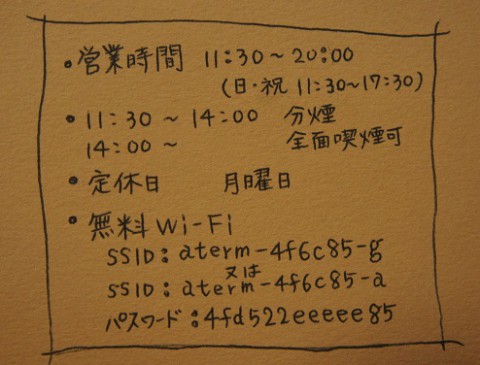 • 営業時間 11:30~20:00
(日・祝 11:30~17:30)
• 11:30 ~ 14:00 分煙
14:00 ~ 全面喫煙可
• 定休日 月曜日
• 無料 Wi-Fi
SSID: aterm-4f6c85-g
又は
SSID: aterm-4f6c85-a
パスワード:4fd522eeeee85